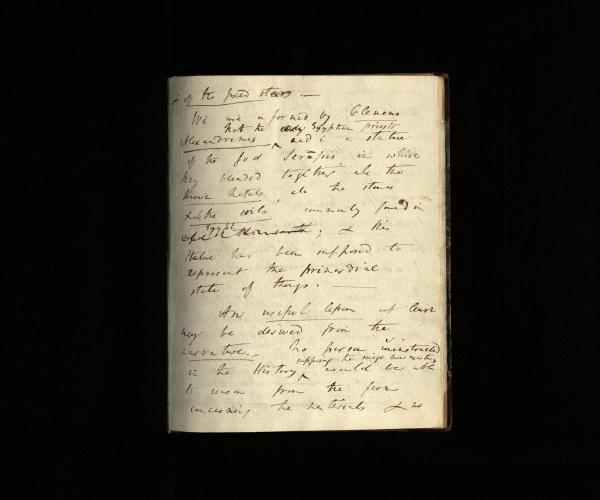 & of the fixed stars. —
We are informed by Clemens
that the Egyptian priests
Alexandrinus, made a statue
of the God Serapis, in which
they blended together all the
known metals, all the stones
& all the soils commonly found in
Egypt; & this
statue has been supposed to
represent the primordial
state of things. —
An useful lesson at least
may be derived from the
narrative. — No person uninstructed
supposing the image now existing
in the History, would be able
to reason from the form
concerning the materials & no